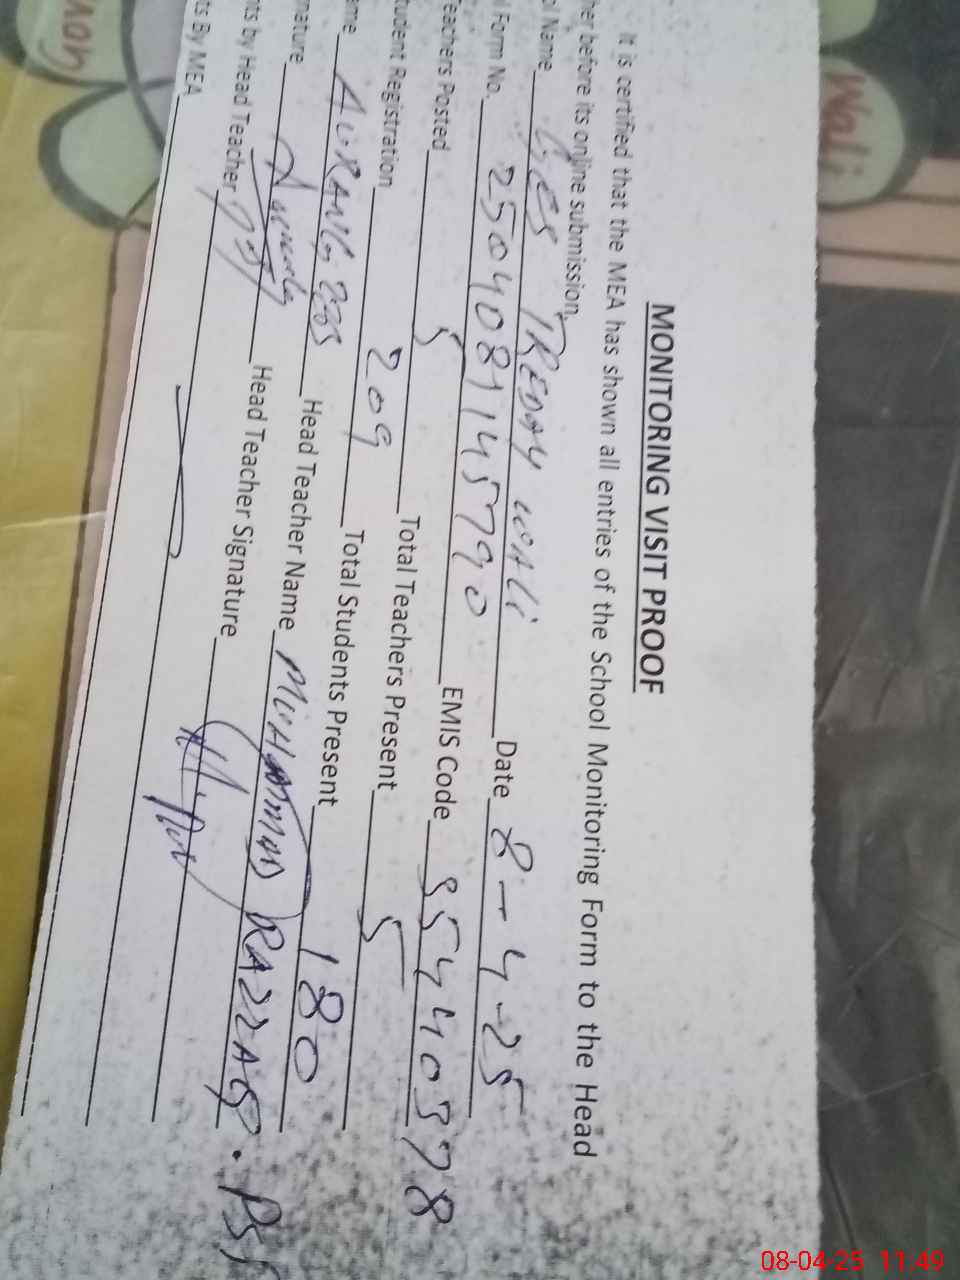 MONITORING VISIT PROOF
It is certified that the MEA has shown all entries of the School Monitoring Form to the Head
her before its online submission.
ol Name GES TREDAY WALI Date 8-4-25
l Form No. 2504081145790 EMIS Code
eachers Posted 5 Total Teachers Present 5
tudent Registration 209 Total Students Present 180
ame AURANG ZEB Head Teacher Name MUHAMMAD RAZZAQ. PST
nature Head Teacher Signature
nts by Head Teacher
ts By MEA
Wali
08-04-25 11:49